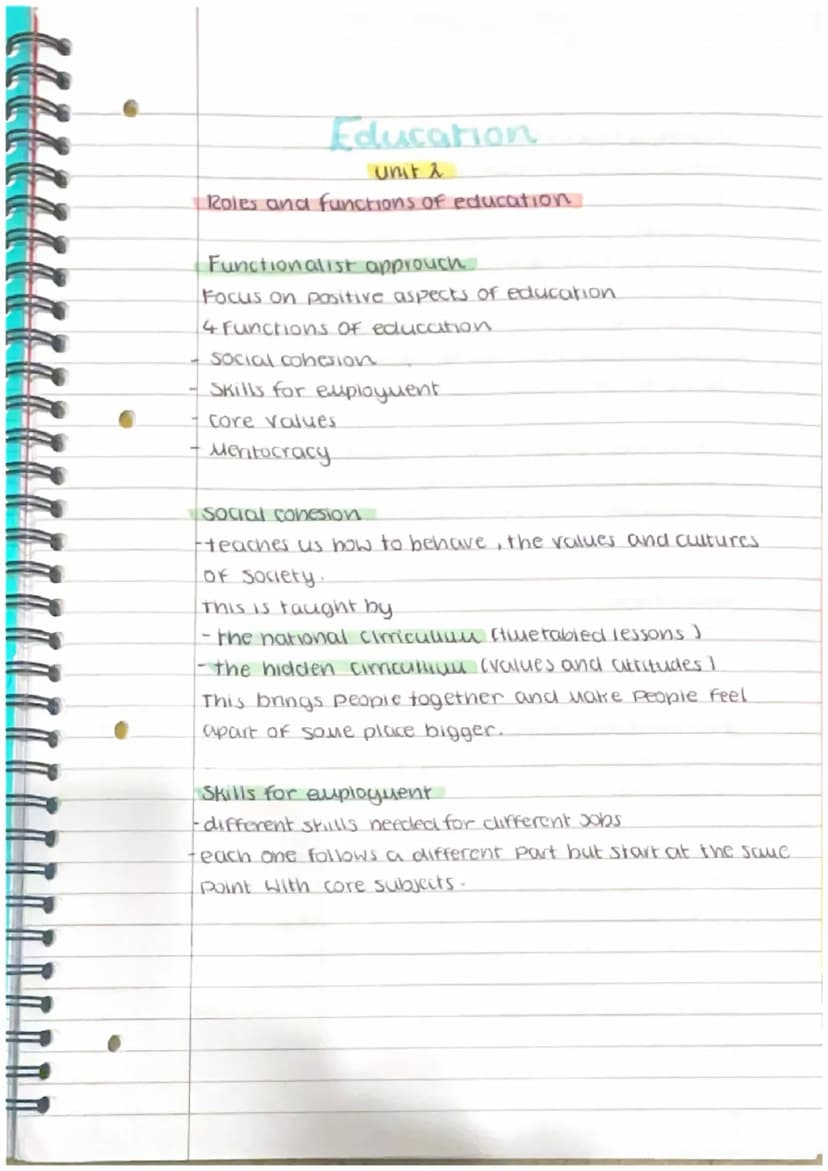 Education
Unit 2
Roles and functions of education
Functionalist approach
Focus on positive aspects of education
4 Functions of education
- Social cohesion
- Skills for employment
- Core values
- Meritocracy
Social cohesion
- teaches us how to behave, the values and cultures
of society.
This is taught by
- the national cirriculum (timetabled lessons)
- the hidden cirriculum (values and attitudes)
This brings people together and make people feel
apart of some place bigger.
Skills for employment
- different skills needed for different Jobs
- each one follows a different part but start at the same
point with core subjects.